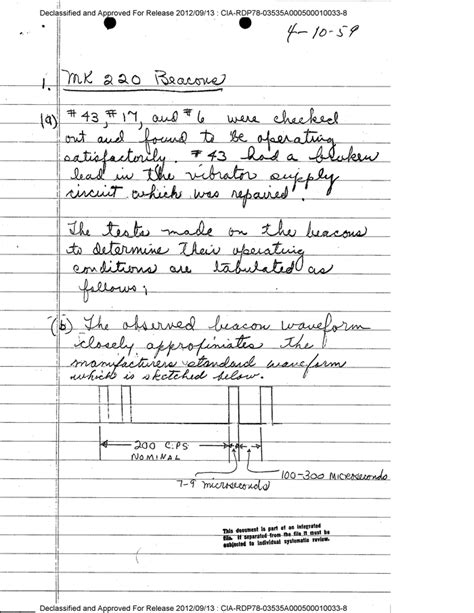 Declassified and Approved For Release 2012/09/13 : CIA-RDP78-03535A000500010033-8
4-10-59
1. MK 220 Beacons
(a) #43, #17, and #6 were checked
out and found to be operating
satisfactorily. #43 had a broken
lead in the vibrator supply
circuit which was repaired.
The tests made on the beacons
to determine their operating
conditions are tabulated as
follows;
(b) The observed beacon waveform
closely appropiniates the
manufacturers standard waveform
which is sketched below.
200 C.P.S
NOMINAL
100-300 MICROSECONDS
7-9 microseconds
This document is part of an integrated
file. If separated from the file it must be
subjected to individual systematic review.
Declassified and Approved For Release 2012/09/13 : CIA-RDP78-03535A000500010033-8